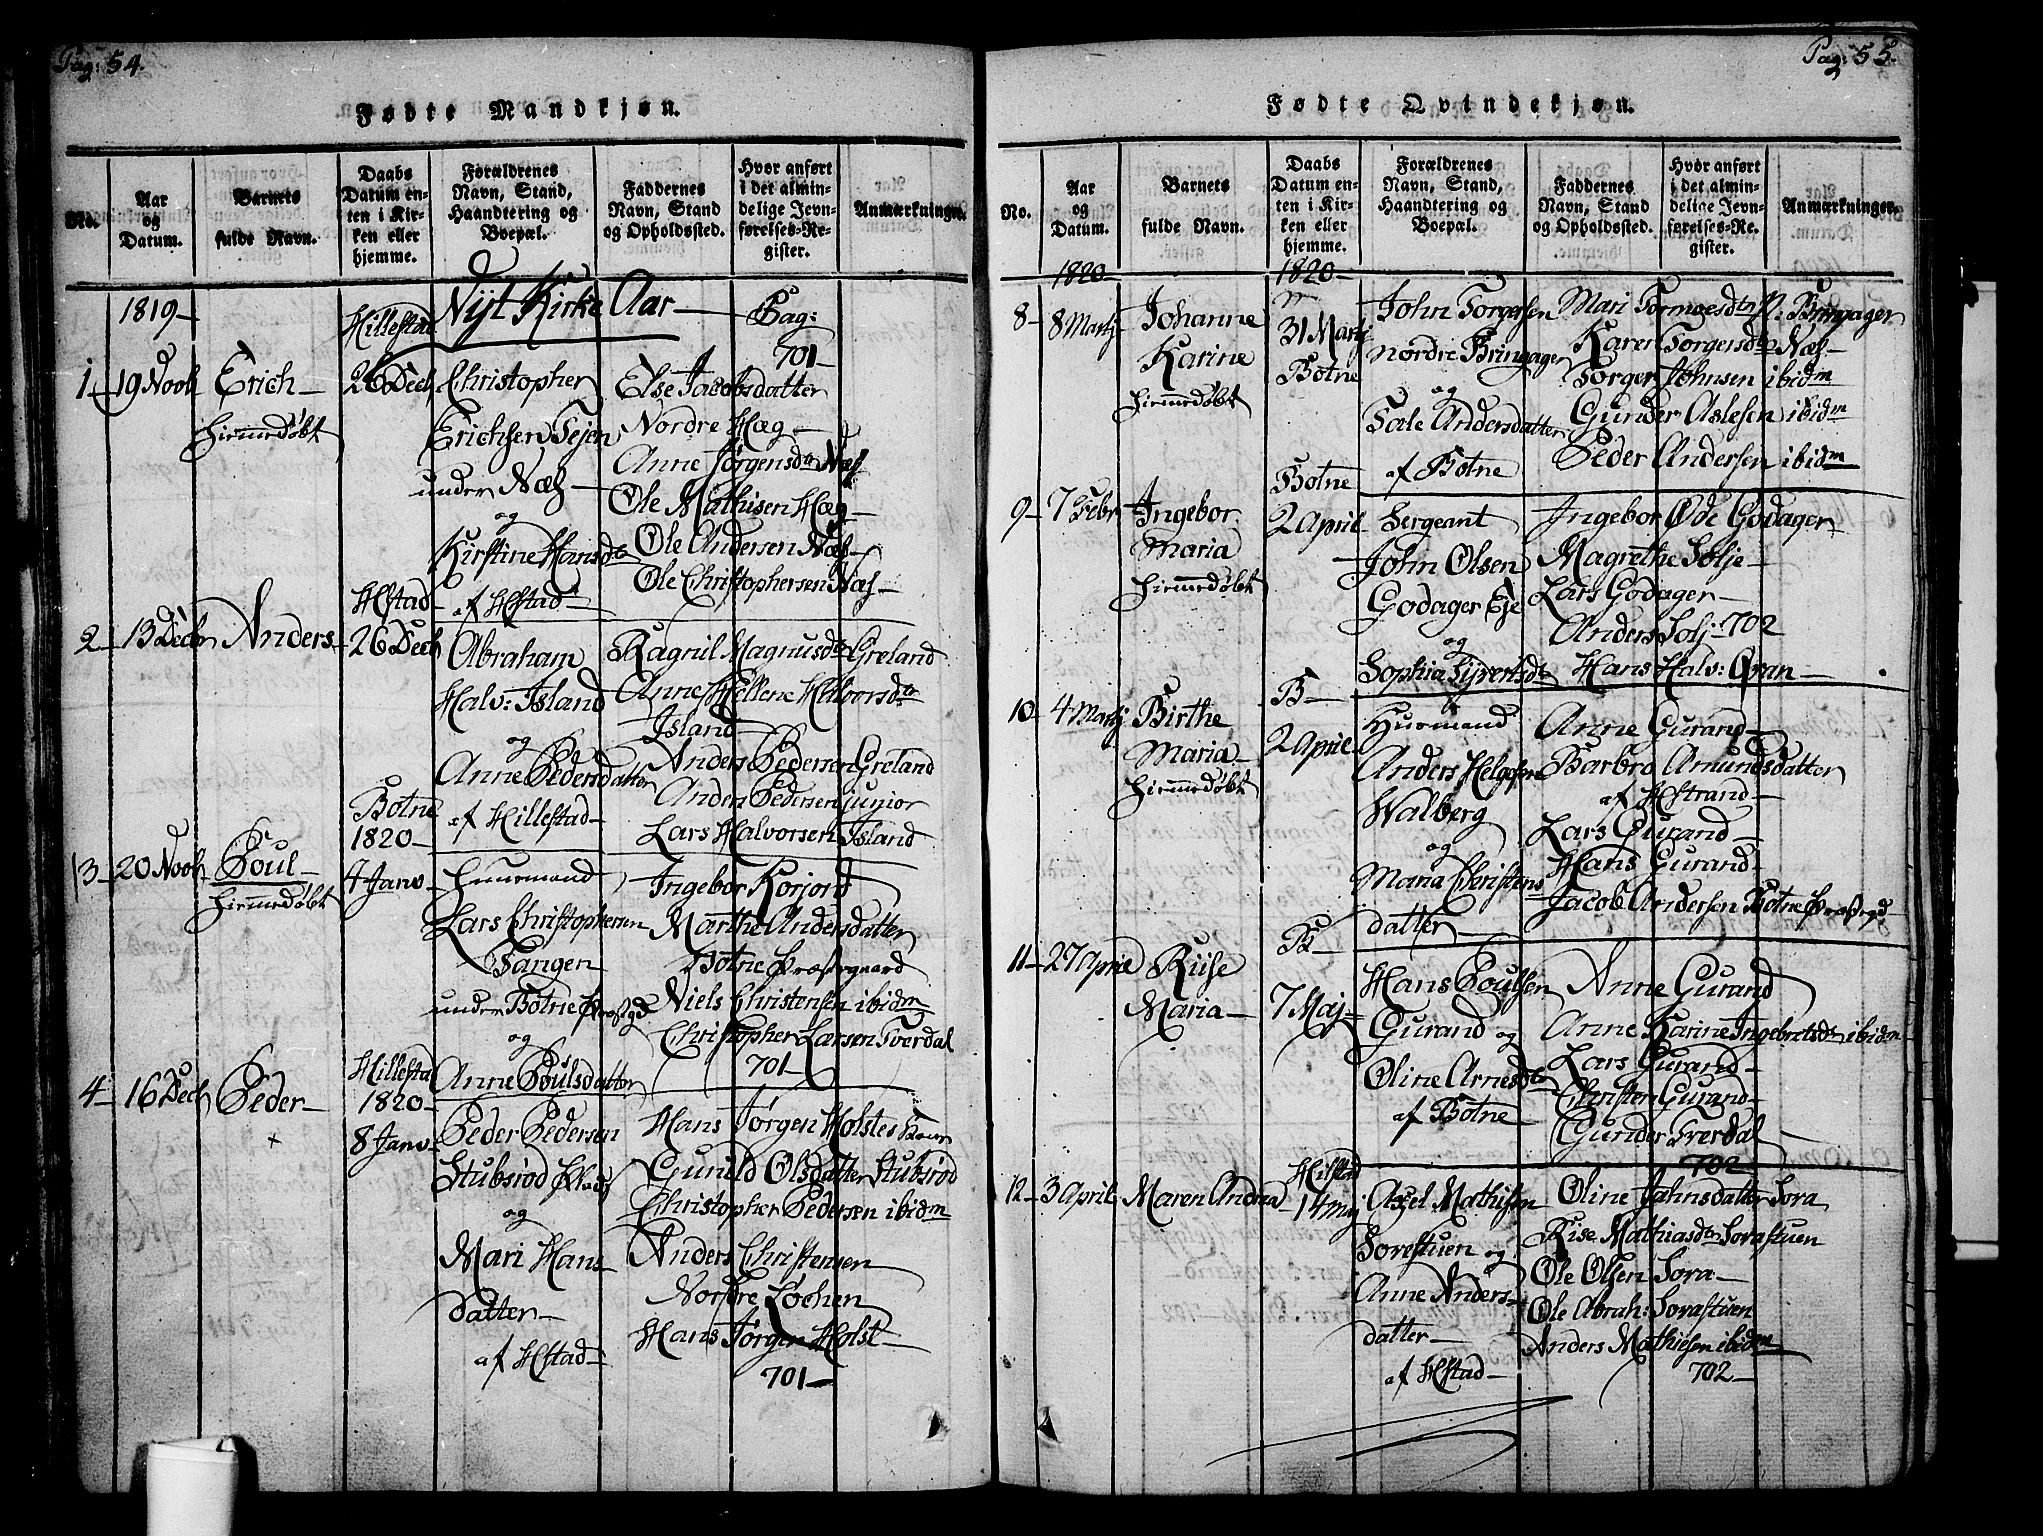 Pag: 54.
Fødte Mandkjøn.
No.
Aar
og
Datum.
Barnets
fulde Navn.
Daabs
Datum en-
ten i Kir-
ken eller
hjemme.
Forældrenes
Navn, Stand,
Haandtering og
Boepæl.
Faddernes
Navn, Stand
og Opholdssted.
Hvor anført
i det almin-
delige Jevn-
førelses-Re-
gister.
Anmærkninger.
1819
Nyt Kirke Aar
1 19 Novb
Erich
Hiemmedøbt
Hillestad
26 Decb
Christopher
Erichsen Tejen
under Næs
og
Kirstine Hansdtr
af Hstad
Pag:
701
Else Jacobsdatter
Nordre Hæg
Anne Jørgensdtr Næs
Ole Mathisen Hæg
Ole Andersen Næs
Ole Christophersen Næs
2 13 Decbr
Anders
Hstad
26 Decb
Abraham
Halv: Island
og
Anne Pedersdatter
af Hillestad
Ragnil Magnusdtr Greland
Anne Hellene Halvorsdtr
Island
Anders Pedersen Greland
Anders Pedersen junior
Lars Halvorsen Island
3 20 Novb
Poul
Hiemmedøbt
Botne
1820
4 Janv
Huusmand
Lars Christophersen
Tangen
under Botne Præstgd
og
Anne Poulsdatter
Ingebor Korjord
Marthe Andersdatter
Botne Præstegaard
Niels Christensen ibidm
Christopher Larsen Tverdal
701
4 16 Decb
Peder
Hillestad
1820
8 Janv
Peder Pedersen
Stubsrød
og
Mari Hans
datter
af Hstad
Hans Jørgen Holstes
Gunild Olsdatter Stubsrød
Christopher Pedersen ibidm
Anders Christensen
Nordre Løchen
Hans Jørgen Holst
701
Pag: 55.
Fødte Qvindekjøn.
No.
Aar
og
Datum.
Barnets
fulde Navn.
Daabs
Datum en-
ten i Kir-
ken eller
hjemme.
Forældrenes
Navn, Stand,
Haandtering og
Boepæl.
Faddernes
Navn, Stand
og Opholdssted.
Hvor anført
i det almin-
delige Jevn-
førelses-Re-
gister.
Anmærkninger.
1820
1820
8 8 Martj
Johanne
Karine
Hiemmedøbt
31 Martj
Botne
John Torgersen
nordre Bringager
og
Tale Andersdatter
af Botne
Mari Tormoesdtr N: Bringager
Karen Torgersdtr Næs
Torger Johnsen ibidm
Gunder Aslesen ibidm
Peder Andersen ibidm
9 7 Febr
Ingebor
Maria
Hiemmedøbt
Botne
2 April
Sergeant
John Olsen
Godager Eje
og
Sophia Sivertsdtr
Ingebor Øde Godager
Magrethe Solje
Lars Godager
Anders Solj: 702
Hans Halv: Qvan
10 4 Martj
Birthe
Maria
Hiemmedøbt
B
2 April
Huusmand
Anders Helgesen
Walberg
og
Maria Christens
datter
Anne Gurand
Barbro Amundsdatter
af Hstrand
Lars Gurand
Hans Gurand
Jacob Andersen Botne Præstgd
11 27 April
Riise
Maria
B
7 Maj
Hans Poulsen
Gurand og
Oline Arnesdtr
af Botne
Anne Gurand
Anne Karine Ingebretsdtr ibidm
Lars Gurand
Christen Gurand
Gunder Tverdal
702
12 3 April
Maren Andrea
Hilstad
14 Maj
Axel Mathisen
Sorestuen og
Anne Anders
datter
af Hstad
Oline Jahnsdatter Sora
Riise Mathiasdtr Sorastuen
Ole Olsen Sora
Ole Abrah: Sorastuen
Anders Mathiesen ibidm
702